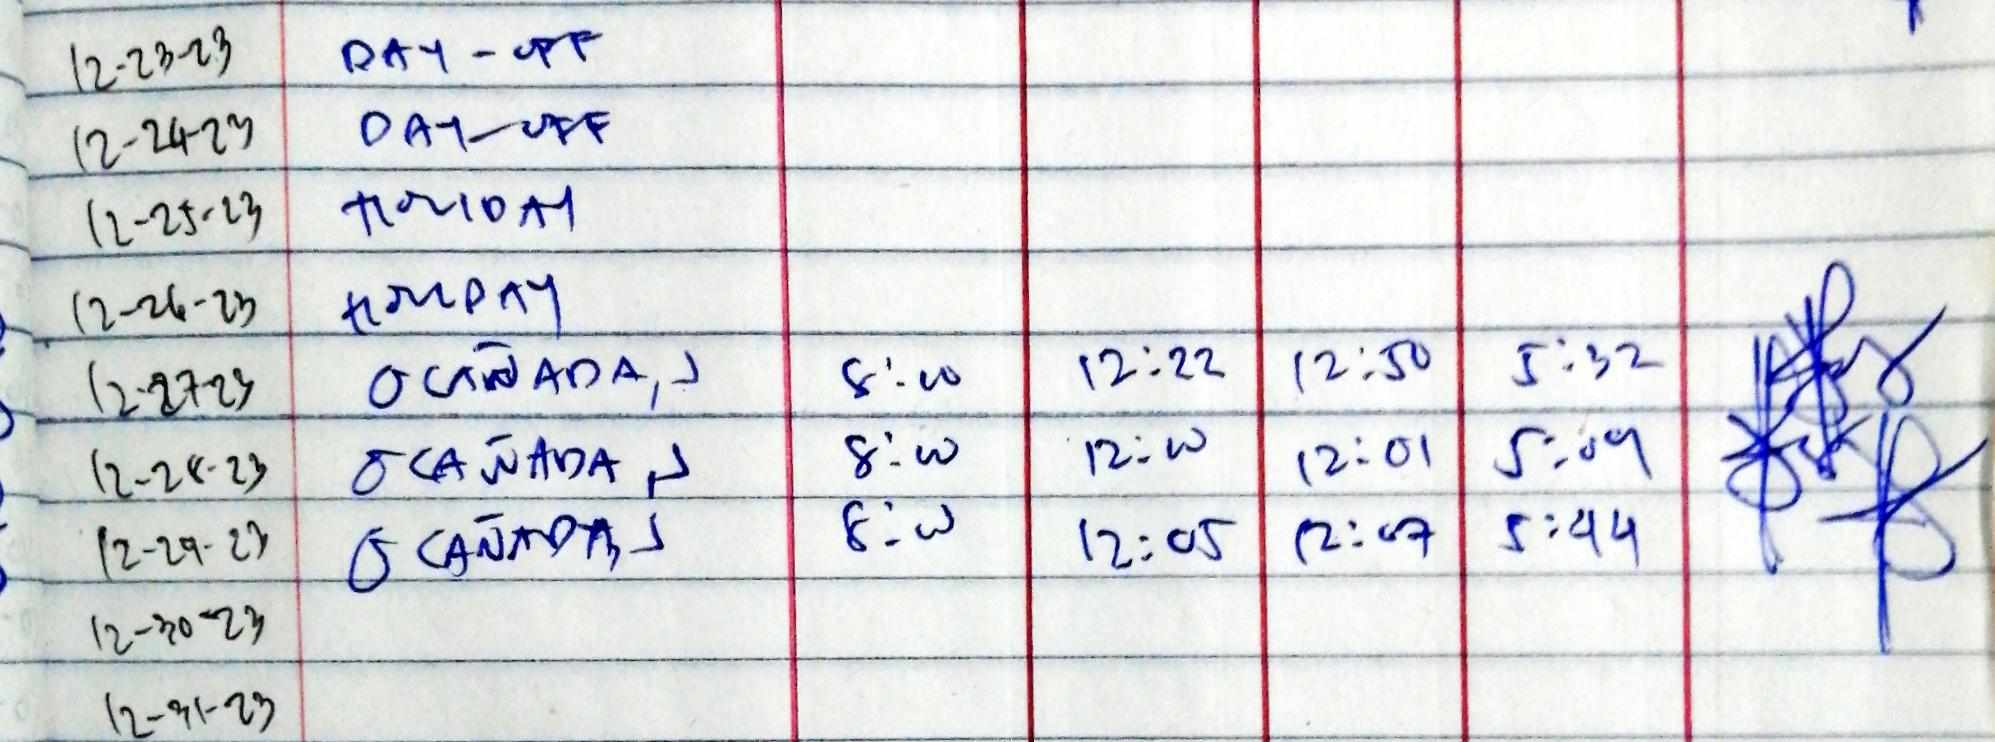 12-23-23 DAY-OFF
12-24-23 DAY-OFF
12-25-23 HOLIDAY
12-26-23 HOLIDAY
12-27-23 OCAÑADA, J 8:00 12:22 12:50 5:32
12-28-23 OCAÑADA, J 8:00 12:00 12:01 5:09
12-29-23 OCAÑADA, J 8:00 12:05 12:07 5:44
12-30-23
12-31-23